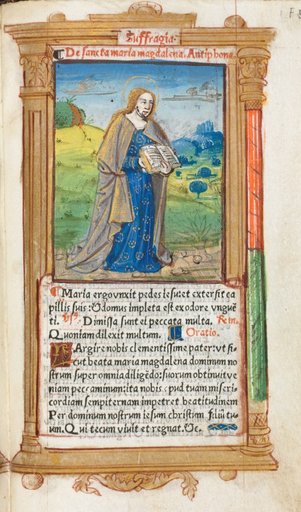 Suffragia.
¶ De sancta maria magdalena. Antiphona.
¶ Maria ergo vnxit pedes iesu: et extersit ca
pillis suis: Odomus impleta est ex odore vngue
ti. ℣. Dimissa sunt ei peccata multa. Rem.
Quoniam dilexit multum. Oratio.
LArgire nobis clementissime pater: vt si
cut beata maria magdalena dominum no
strum super omnia diligēdo: suorum obtinuit ve
niam peccaminum: ita nobis: apud tuam miseri
cordiam sempiternam impetret beatitudinem
Per dominum nostrum iesum christum filiū tu
um. Qui tecum viuit et regnat. ⁊c.